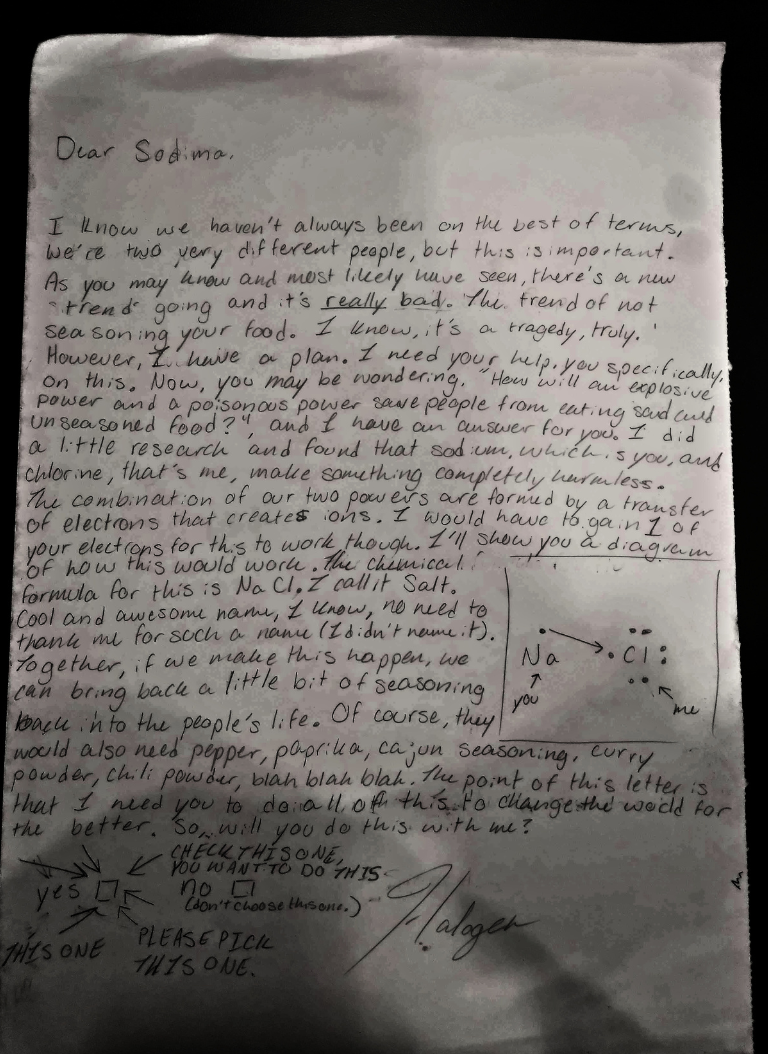 Dear Sodima.
I know we haven't always been on the best of terms,
we're two very different people, but this is important.
As you may know and most likely have seen, there's a new
"trend" going and it's really bad. The trend of not
seasoning your food. I know, it's a tragedy, truly.
However, I have a plan. I need your help, you specifically,
on this. Now, you may be wondering. "How will an explosive
power and a poisonous power save people from eating sad and
unseasoned food?", and I have an answer for you. I did
a little research and found that sodium, which is you, and
chlorine, that's me, make something completely harmless.
The combination of our two powers are formed by a transfer
of electrons that creates ions. I would have to gain 1 of
your electrons for this to work though. I'll show you a diagram
of how this would work. The chemical
formula for this is NaCl. I call it Salt.
Cool and awesome name, I know, no need to
thank me for such a name (I didn't name it).
Together, if we make this happen, we
can bring back a little bit of seasoning
back into the people's life. Of course, they
would also need pepper, paprika, cajun seasoning, curry
powder, chili powder, blah blah blah. The point of this letter is
that I need you to do all of this to change the world for
the better. So, will you do this with me?
Na Cl
you
me
CHECK THIS ONE,
YOU WANT TO DO THIS
yes no
(don't choose this one.)
THIS ONE
PLEASE PICK
THIS ONE.
Halogen